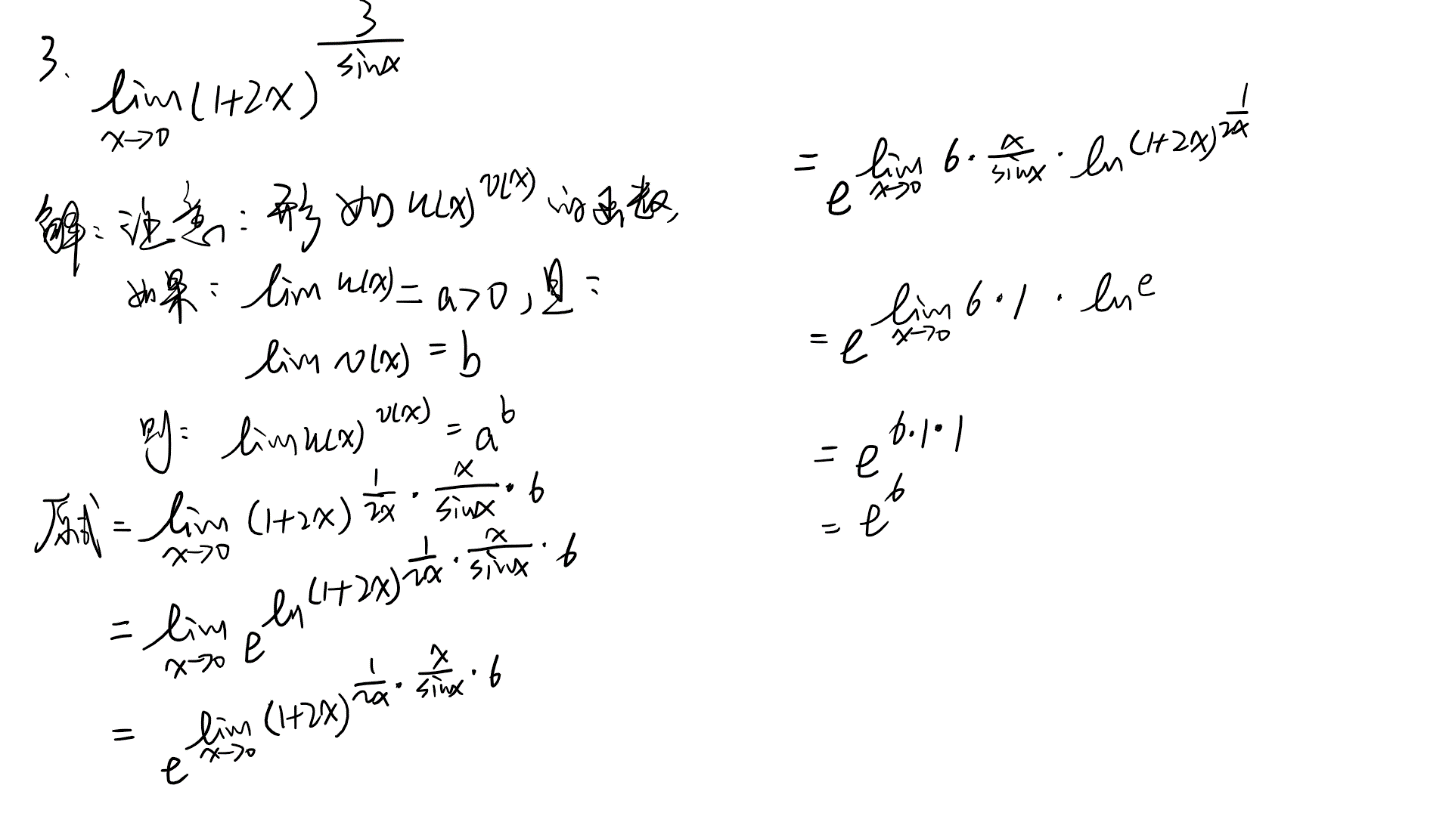 3. lim_{x→0} (1+2x)^{3/sinx}
解: 注意: 形如 u(x)^{v(x)} 的函数,
如果: lim u(x) = a>0, 且:
lim v(x) = b
则: lim u(x)^{v(x)} = a^b
原式 = lim_{x→0} (1+2x)^{1/2x · x/sinx · 6}
= lim_{x→0} e^{ln(1+2x)^{1/2x · x/sinx · 6}}
= e^{lim_{x→0} (1+2x)^{1/2x · x/sinx · 6}}
= e^{lim_{x→0} 6 · x/sinx · ln(1+2x)^{1/2x}}
= e^{lim_{x→0} 6·1 · ln e}
= e^{6·1·1}
= e^6